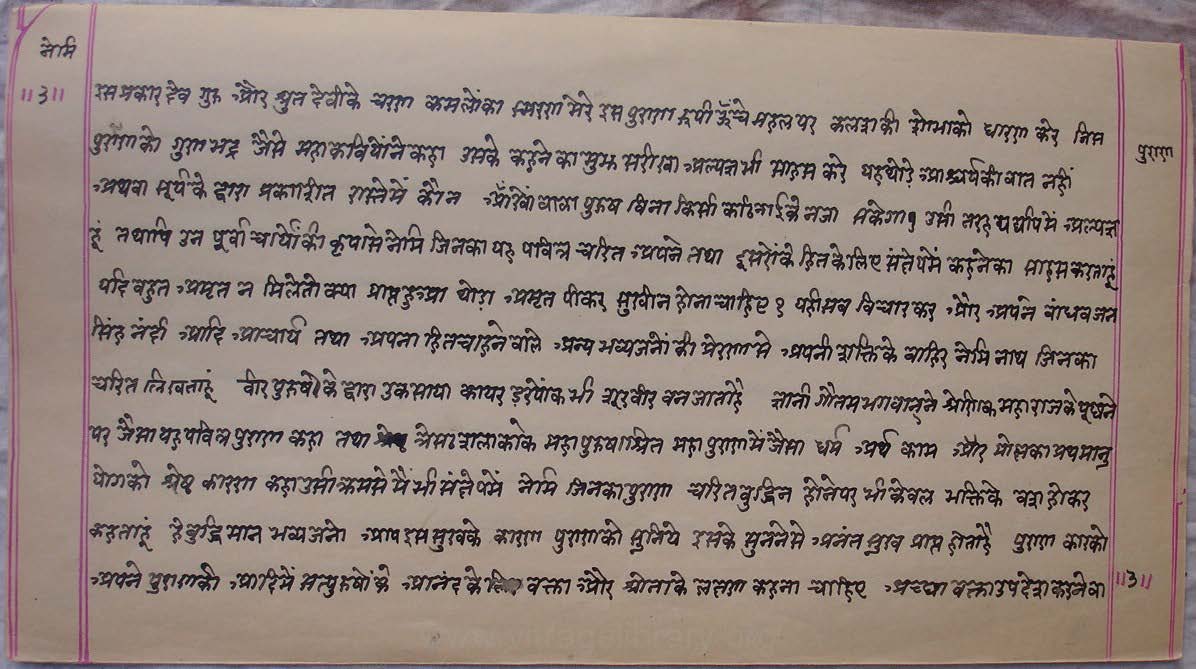 नेमि
॥३॥
इस प्रकार देव गुरु और श्रुत देवीके चरण कमलोंका स्मरण मेरे इस पुराण रूपी ऊँचे महल पर कलशकी शोभाको धारण करे जिस
पुराणको गुणभद्र जैसे महाकवियोंने कहा उसके कहनेका मुझ सरीखा अल्पज्ञ भी साहस करे यह थोरे आश्चर्यकी वात नहीं
अथवा सूर्यके द्वारा प्रकाशित रास्तेमें कौन आँखों वाला पुरुष विना किसी कठिनाईके न जा सकेगा १ उसी तरह यद्यपि में अल्पज्ञ
हूं तथापि उन पूर्वाचार्योंकी कृपासे नेमि जिनका यह पवित्र चरित अपने तथा दूसरोंके हितके लिए संक्षेपमें कहनेका साहस करताहूं
यदि वहुत अमृत न मिलेतो क्या प्राप्त हुआ थोड़ा अमृत पीकर सुखी न होना चाहिए १ यही सब विचार कर और अपने वांधवजन
सिंह नंदी आदि आचार्य तथा अपना हित चाहने वाले अन्य भव्यजनों की प्रेरणासे अपनी शक्तिके वाहिर नेमि नाथ जिनका
चरित लिखताहूं वीर पुरुषोंके द्वारा उकसाया कायर डरपोंक भी शूरवीर वन जाताहै ज्ञानी गौतम भगवान्ने श्रेणिक महाराजके पूछने
पर जैसा यह पवित्र पुराण कहा तथा त्रेसठ शलाकाके महापुरुषाश्रित महापुराणमें जैसा धर्म अर्थ काम और मोक्षका प्रथमानु
योगको श्रेष्ठ कारण कहा उसी क्रमसे मैं भी संक्षेपमें नेमि जिनका पुराण चरित वुद्धिन होनेपर भी केवल भक्तिके वश होकर
कहताहूं हे वुद्धिमान भव्यजनो आप इस सुखके कारण पुराणको सुनिये इसके सुननेसे अनंत सुख प्राप्त होताहै पुराण कारको
अपने पुराणकी आदिमें सत्पुरुषोंके आनंद के लिए वक्ता और श्रोताके लक्षण कहना चाहिए अच्छा वक्ता उपदेश करनेवा
पुराण
॥३॥